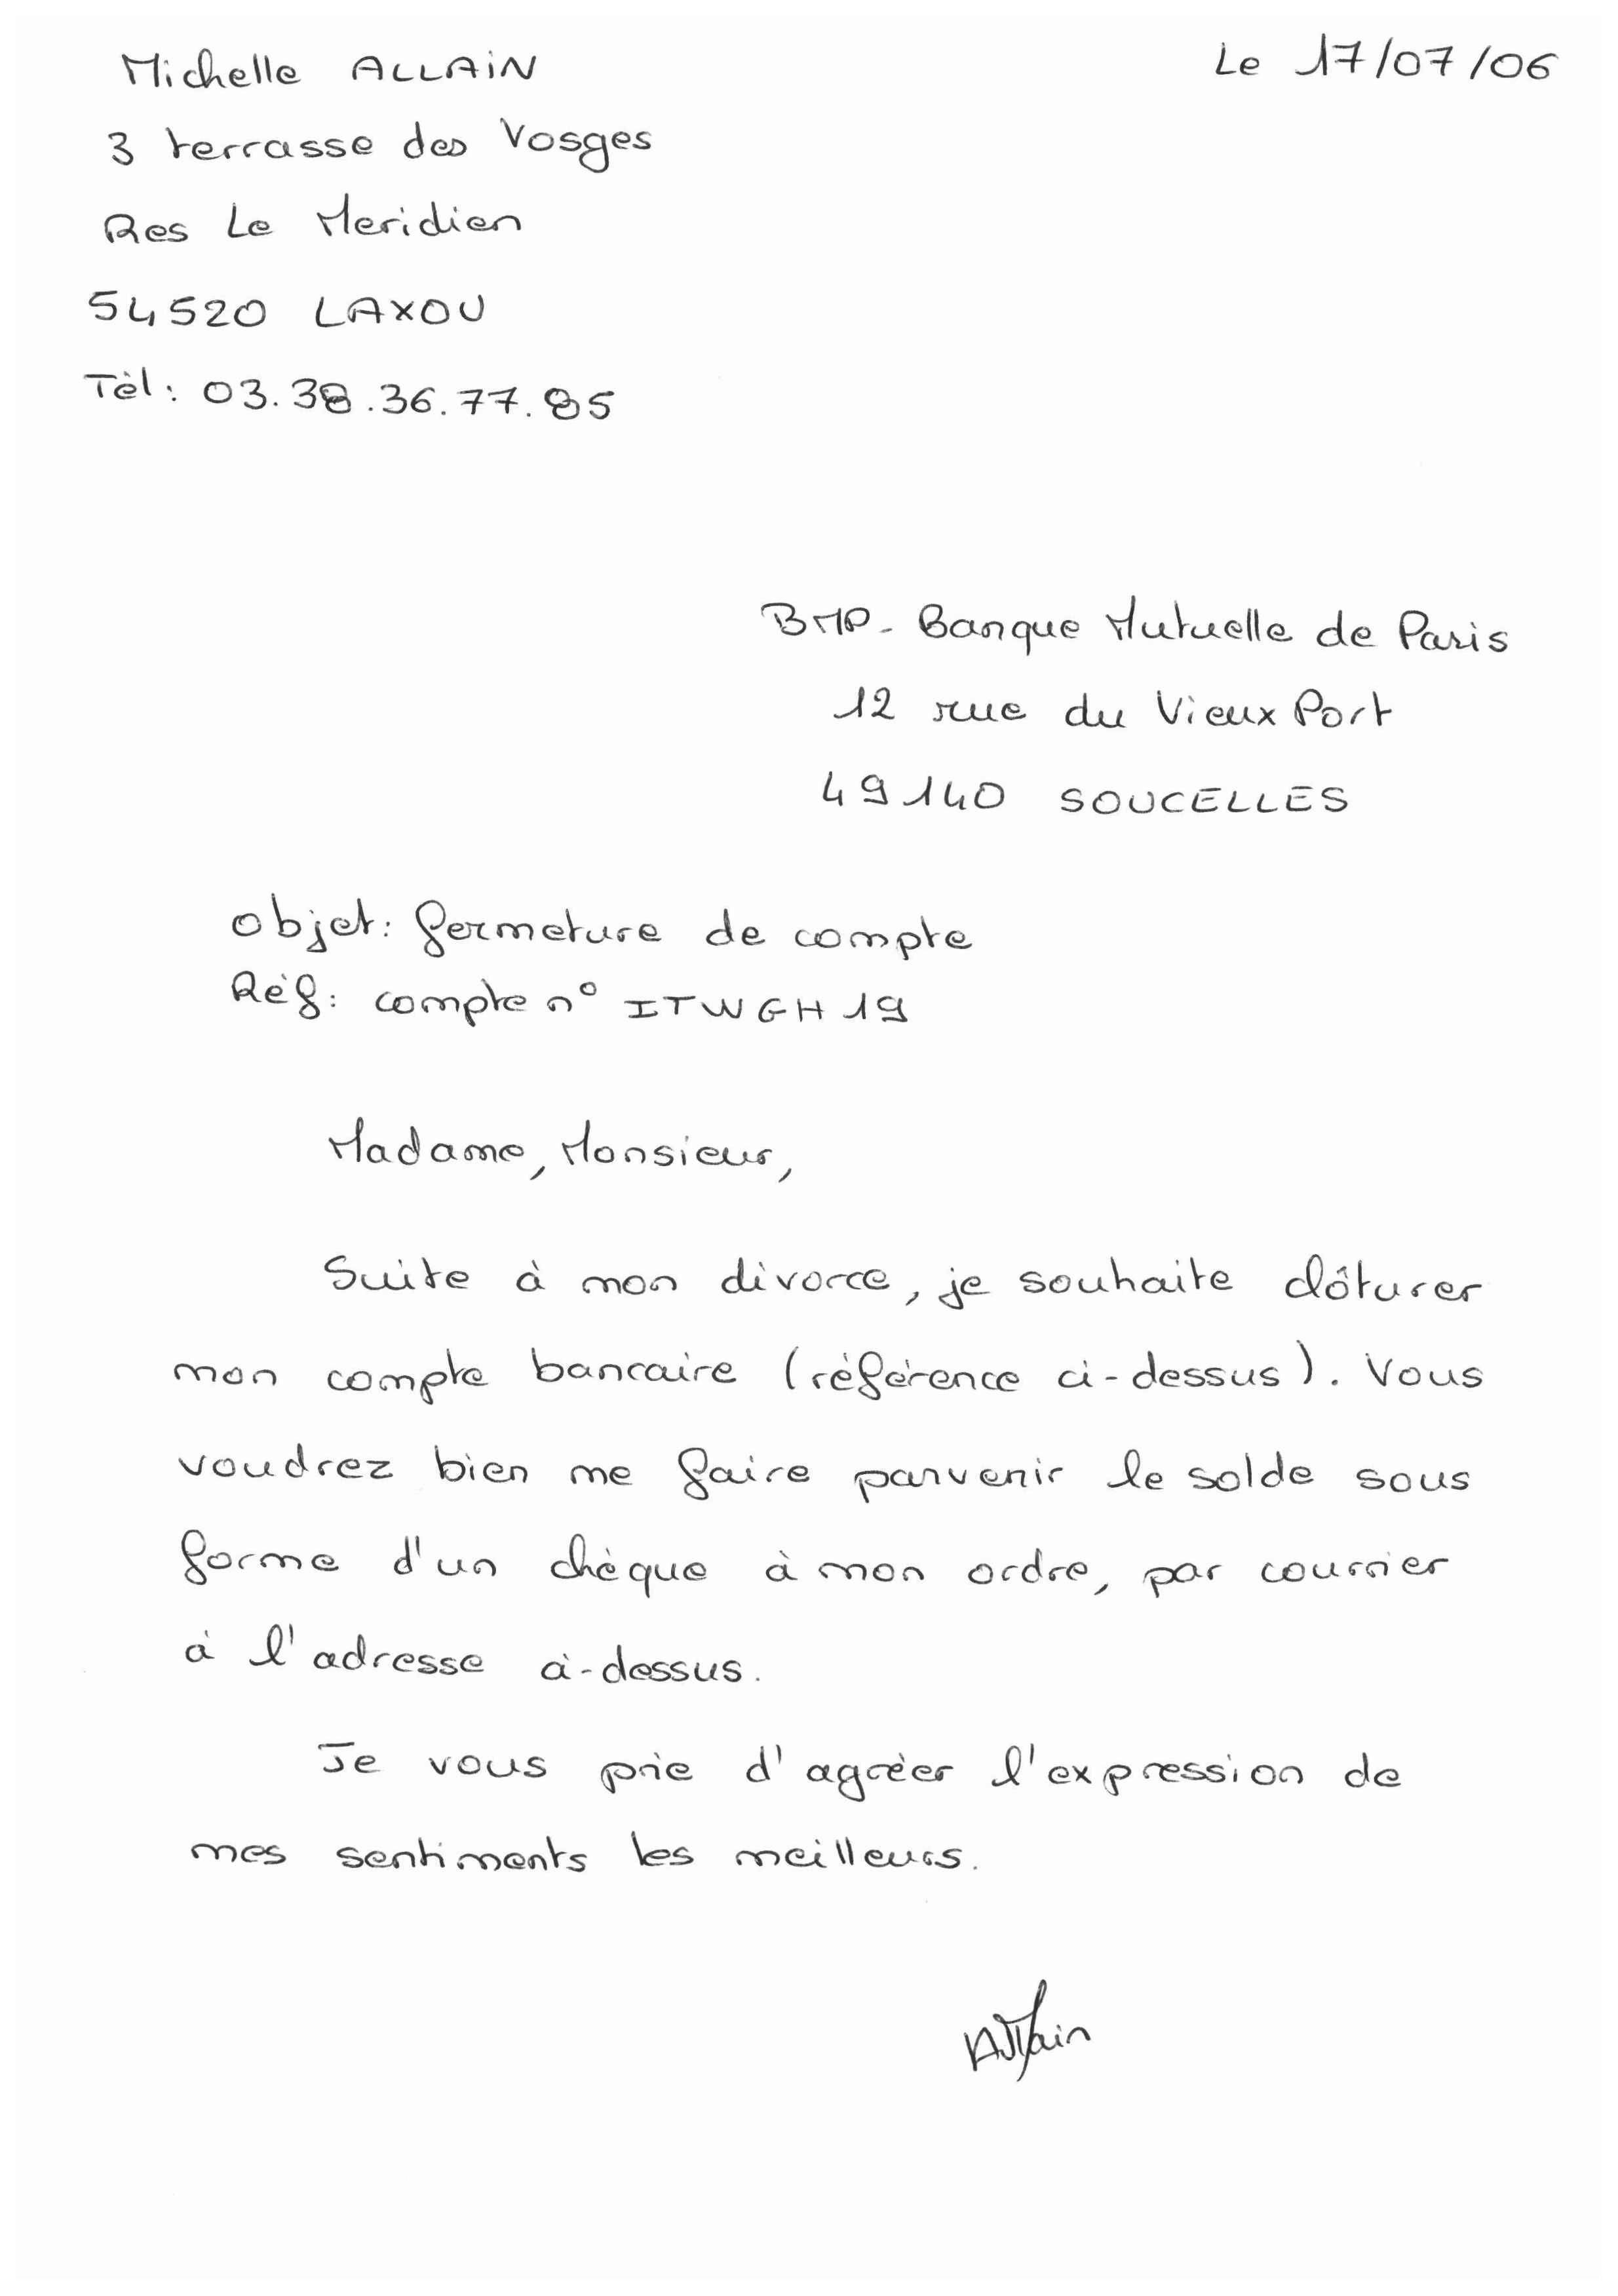 Michelle ALLAIN
Le 17/07/06
3 terrasse des Vosges
Res Le Meridien
54520 LAXOU
Tél: 03.38.36.77.85
BMP- Banque Mutuelle de Paris
12 rue du Vieux Port
49140 SOUCELLES
objet: fermeture de compte
Réf: compte n° ITWGH19
Madame, Monsieur,
Suite à mon divorce, je souhaite clôturer
mon compte bancaire (référence ci-dessus). Vous
voudrez bien me faire parvenir le solde sous
forme d'un chèque à mon ordre, par courrier
à l'adresse ci-dessus.
Je vous prie d'agréer l'expression de
mes sentiments les meilleurs.
Allain